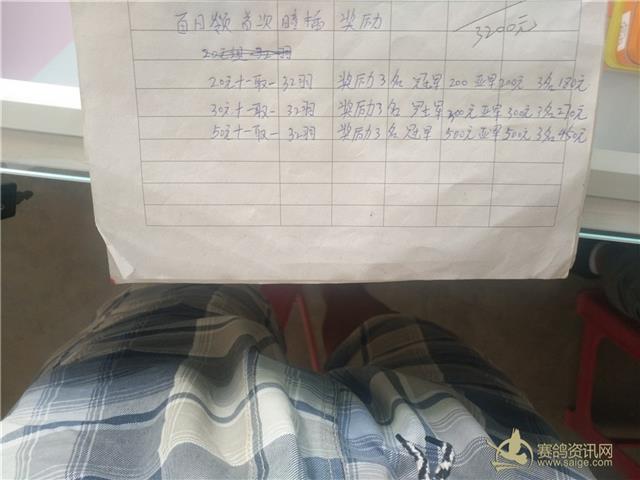 百日龄首次暗插 奖励 3200元
20元十一取一32羽 奖励3名 冠军 200 亚军 200元 3名180元
30元十一取一 32羽 奖励3名 冠军 300元 亚军 300元 3名270元
50元十一取一 32羽 奖励3名 冠军 500元 亚军 500元 3名450元
赛鸽资讯网
www.saige.com